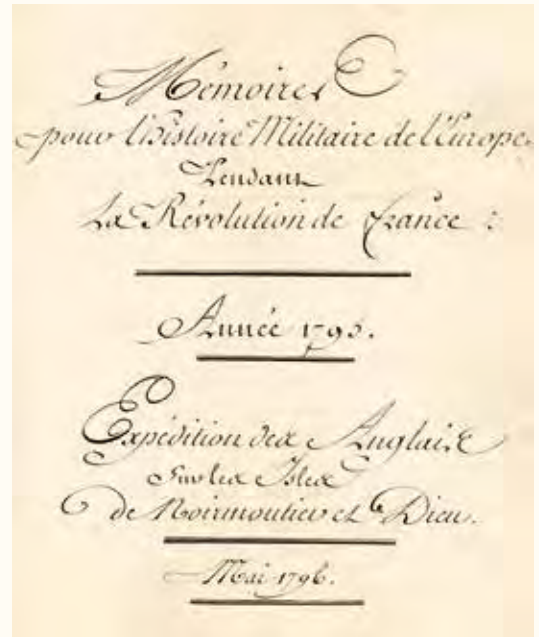 Mémoires
pour l'histoire Militaire de l'Europe
Pendant
La Révolution de France :
Année 1795.
Expédition des Anglais
sur les Isles
de Noirmoutier et Dieu.
Mai 1796.